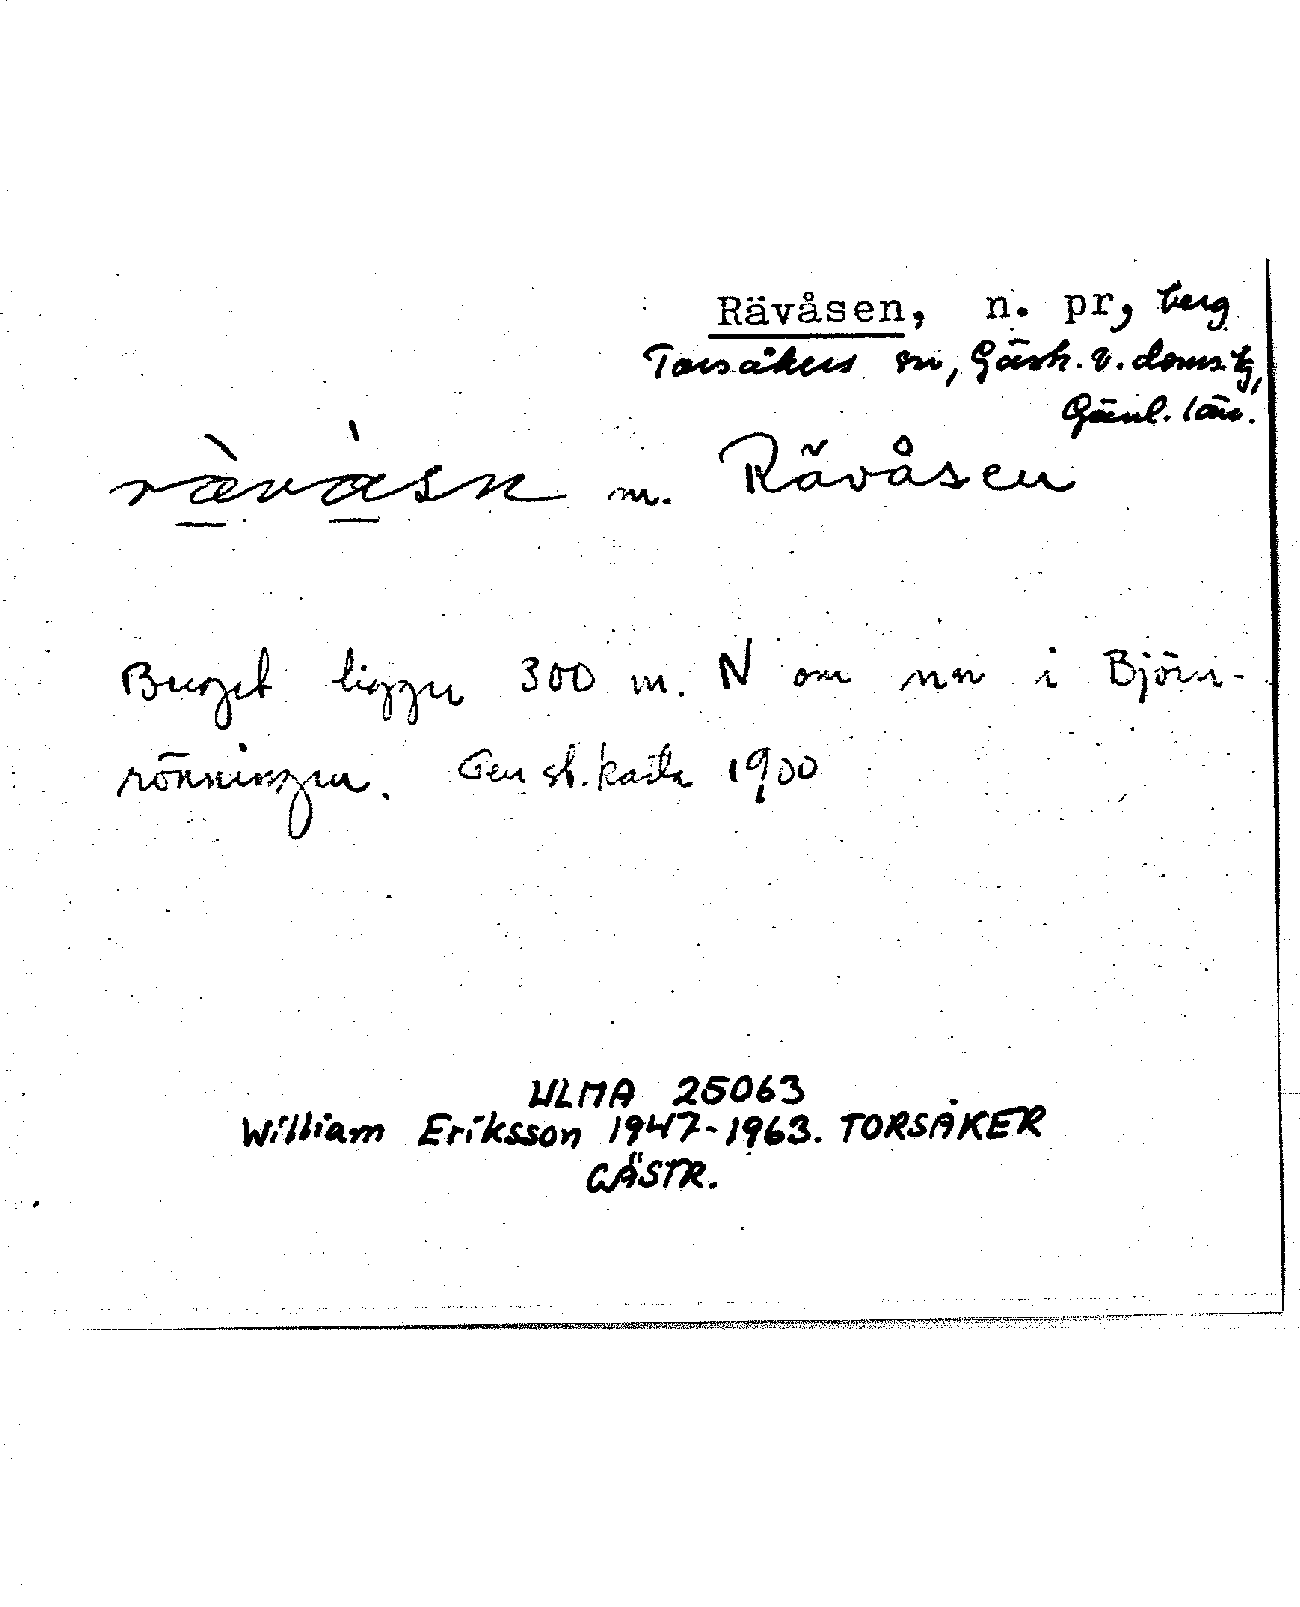 Rävåsen, n. pr, berg
Torsåkers sn, Gästr. v. doms.
Gävl. län.
rævåsn m. Rävåsen
Berget ligger 300 m. N om nn i Björn-
rönningen. Gen st. karta 1900
ULMA 25063
William Eriksson 1947-1963. TORSÅKER
GÄSTR.